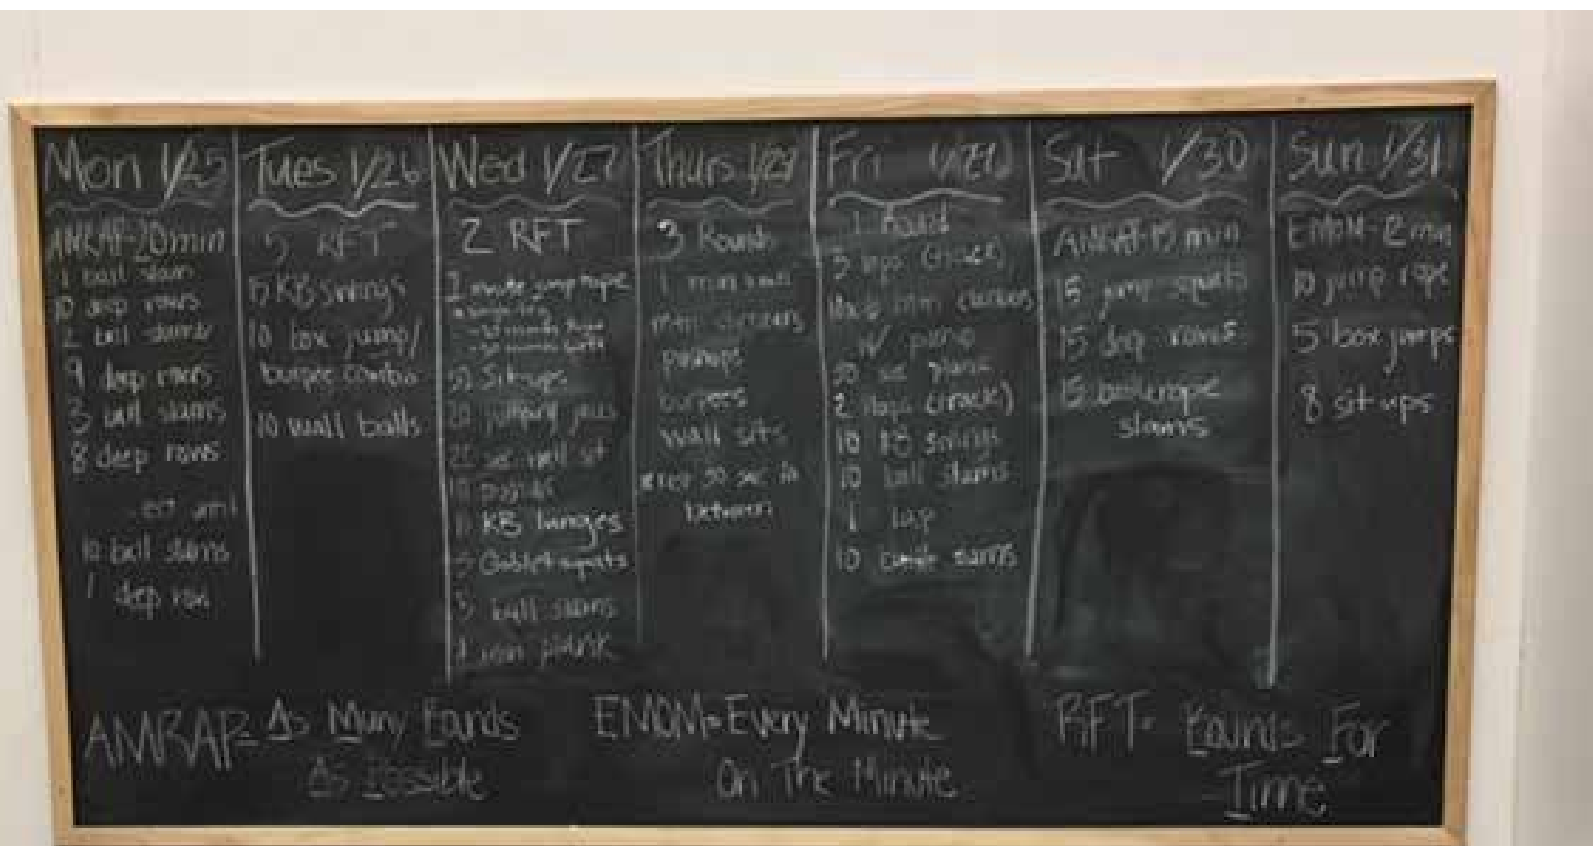 Mon 1/25
AMRAP-20min
1 ball slam
10 deep rows
2 ball slams
9 deep rows
3 ball slams
8 deep rows
10 ball slams
1 deep row
Tues 1/26
5 RFT
15 KB Swings
10 box jump/
burpee combo
10 wall balls
Wed 1/27
2 RFT
2 minute jump rope
50 Sit-ups
20 jumping jacks
sec wall sit
KB lunges
5 Goblet squats
ball slams
1 min plank
Thurs 1/28
3 Rounds
1 min
pushups
burpees
wall sits
30 sec in
between
Fri
1 Round
laps (track)
sec plank
2 laps (track)
10 KB Swings
10 ball slams
1 lap
10 slams
Sat 1/30
AMRAP-15 min
15 jump squats
15 deep rows
15 battlerope
slams
Sun 1/31
EMOM-12 min
10 jump rope
5 box jumps
8 sit ups
AMRAP= As Many Rounds
As Possible
EMOM=Every Minute
On The Minute
RFT= Rounds For
Time